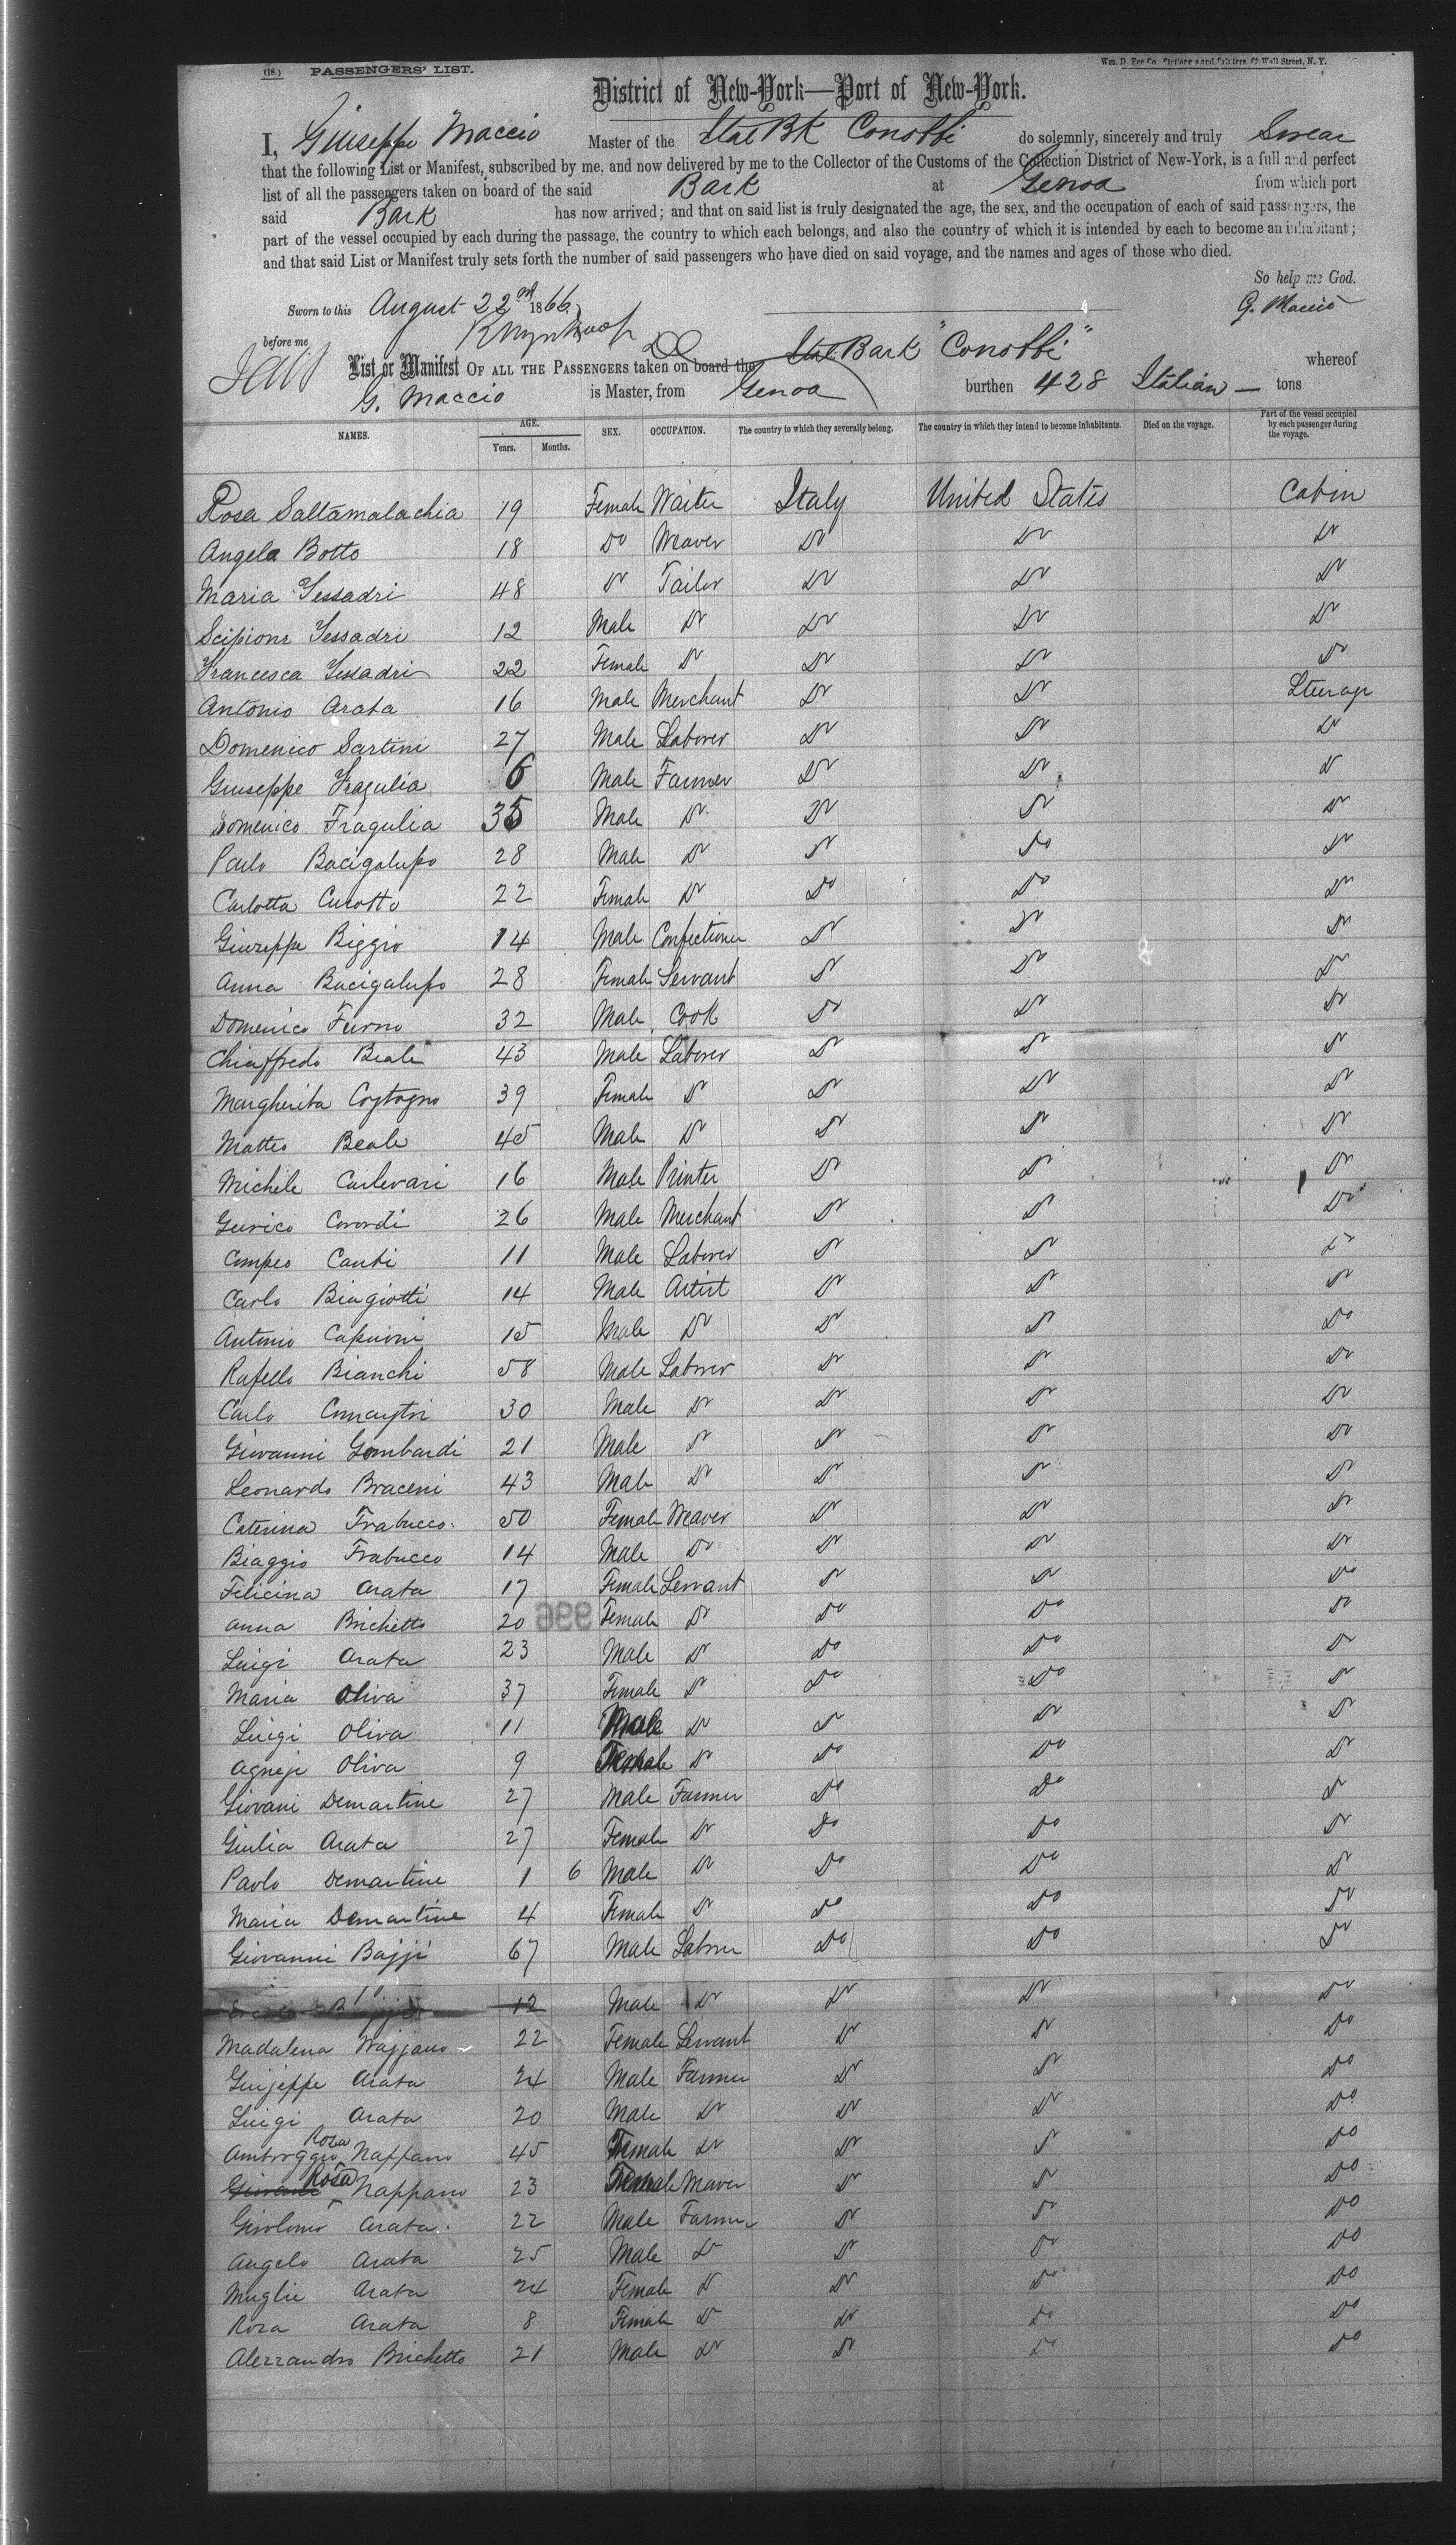 (18.) PASSENGERS' LIST.
Wm. D. Roe Co. Stationers and Printers, 62 Wall Street, N. Y.
District of New-York—Port of New-York.
I, Giuseppe Maccio Master of the Ital Bk Conobbi do solemnly, sincerely and truly Swear
that the following List or Manifest, subscribed by me, and now delivered by me to the Collector of the Customs of the Collection District of New-York, is a full and perfect
list of all the passengers taken on board of the said Bark at Genoa from which port
said Bark has now arrived; and that on said list is truly designated the age, the sex, and the occupation of each of said passengers, the
part of the vessel occupied by each during the passage, the country to which each belongs, and also the country of which it is intended by each to become an inhabitant;
and that said List or Manifest truly sets forth the number of said passengers who have died on said voyage, and the names and ages of those who died.
So help me God.
Sworn to this August 22nd 1866 G. Maccio
before me
List or Manifest OF ALL THE PASSENGERS taken on board the Ital Bark "Conobbi" whereof
G. Maccio is Master, from Genoa burthen 428 Italian — tons
NAMES. AGE. Years. Months. SEX. OCCUPATION. The country to which they severally belong. The country in which they intend to become inhabitants. Died on the voyage. Part of the vessel occupied by each passenger during the voyage.
Rosa Saltamalachia 19 Female Waiter Italy United States Cabin
Angela Botto 18 Do Weaver Do Do Do
Maria Gessadri 48 Do Tailor Do Do Do
Scipione Gessadri 12 Male Do Do Do Do
Francesca Gessadri 22 Female Do Do Do Do
Antonio Arata 16 Male Merchant Do Do Steerage
Domenico Sartini 27 Male Laborer Do Do Do
Giuseppe Fragulia 6 Male Farmer Do Do Do
Domenico Fragulia 35 Male Do Do Do Do
Paolo Bacigalupo 28 Male Do Do Do Do
Carlotta Curotto 22 Female Do Do Do Do
Giuseppe Biggio 14 Male Confectioner Do Do Do
Anna Bacigalupo 28 Female Servant Do Do Do
Domenico Furno 32 Male Cook Do Do Do
Chiaffredo Beale 43 Male Laborer Do Do Do
Margherita Cogtagno 39 Female Do Do Do Do
Matteo Beale 45 Male Do Do Do Do
Michele Carlevari 16 Male Printer Do Do Do
Gurico Corordi 26 Male Merchant Do Do Do
Compeo Canti 11 Male Laborer Do Do Do
Carlo Biagiotti 14 Male Artist Do Do Do
Antonio Capurni 15 Male Do Do Do Do
Rafello Bianchi 58 Male Laborer Do Do Do
Carlo 30 Male Do Do Do Do
Giovanni Gombardi 21 Male Do Do Do Do
Leonardo Braceni 43 Male Do Do Do Do
Caterina Frabucco 50 Female Weaver Do Do Do
Biaggio Frabucco 14 Male Do Do Do Do
Filicina Arata 17 Female Servant Do Do Do
Anna Brichetto 20 Female Do Do Do Do
Luigi Arata 23 Male Do Do Do Do
Maria Oliva 37 Female Do Do Do Do
Luigi Oliva 11 Male Do Do Do Do
Agneje Oliva 9 Female Do Do Do Do
Giovani Demartine 27 Male Farmer Do Do Do
Giulia Arata 27 Female Do Do Do Do
Paolo Demartine 1 6 Male Do Do Do Do
Maria Demartine 4 Female Do Do Do Do
Giovanni Bajji 67 Male Laborer Do Do Do
12 Male Do Do Do Do
Madalena Wajjano 22 Female Servant Do Do Do
Giujeppe Arata 24 Male Farmer Do Do Do
Luigi Arata 20 Male Do Do Do Do
Ambroggio Rosa Nappano 45 Female Do Do Do Do
Giovani Rosa Nappano 23 Female Weaver Do Do Do
Girolomo Arata 22 Male Farmer Do Do Do
Angelo Arata 25 Male Do Do Do Do
Muglie Arata 24 Female Do Do Do Do
Roza Arata 8 Female Do Do Do Do
Alezzandro Brichetto 21 Male Do Do Do Do